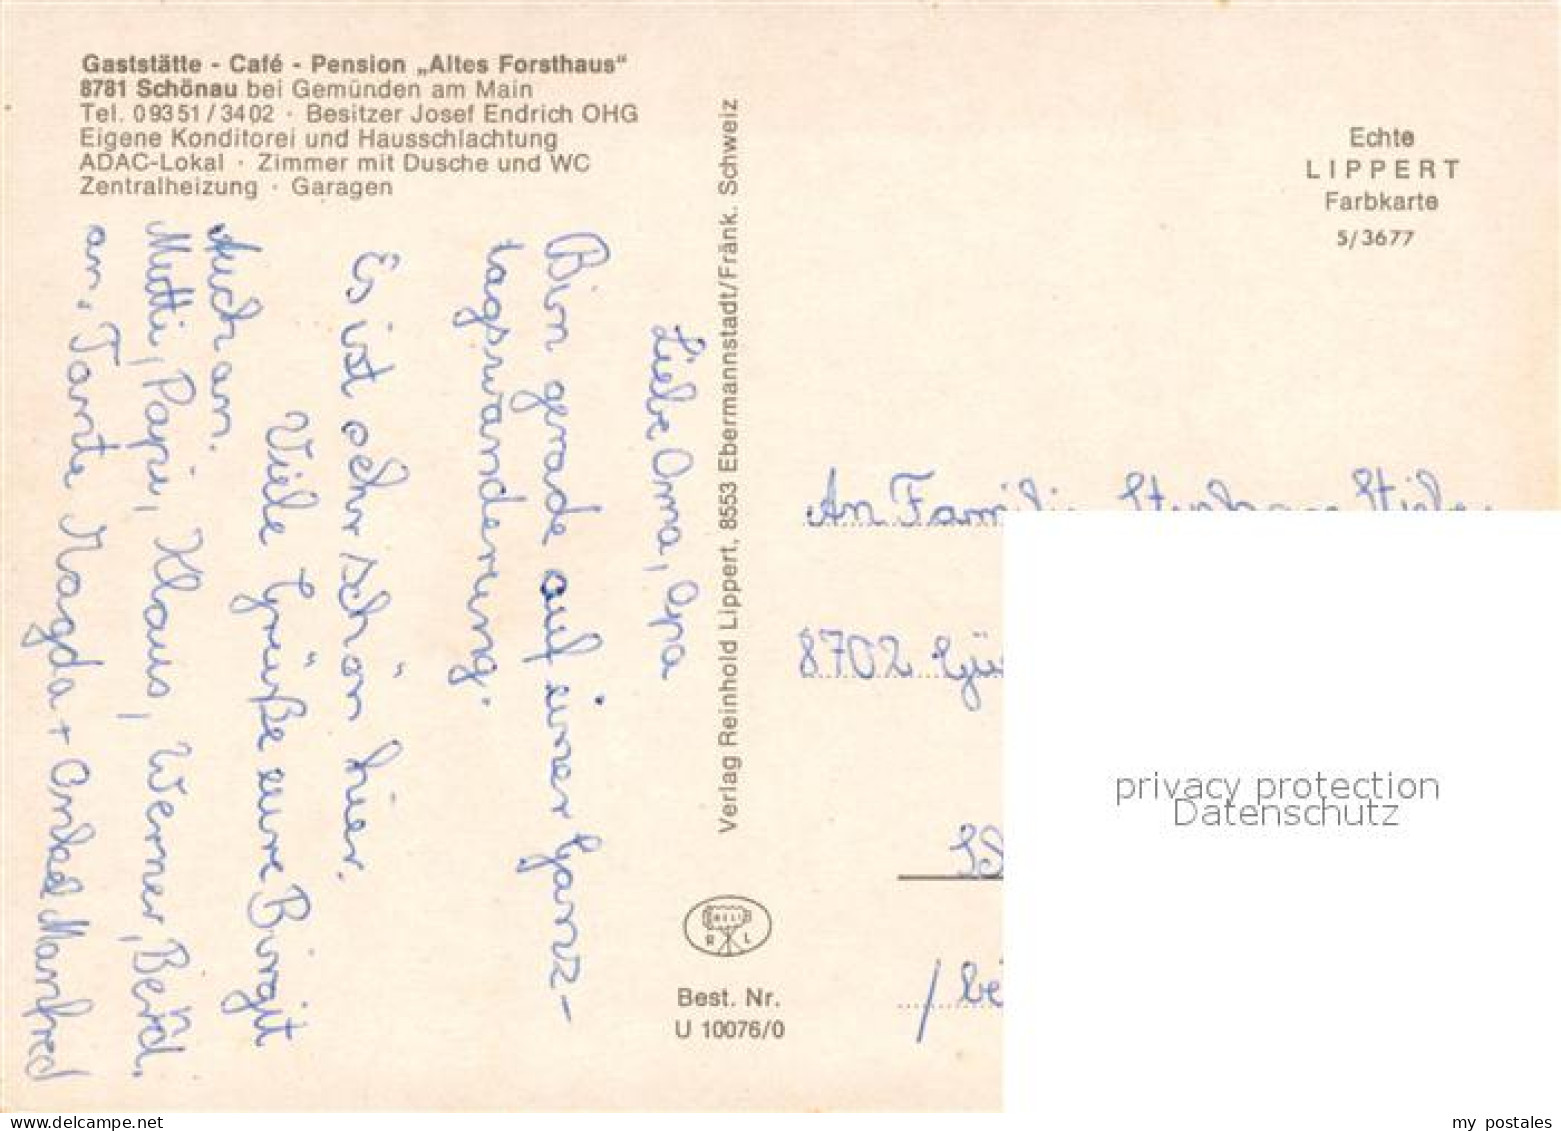 Gaststätte - Café - Pension „Altes Forsthaus“
8781 Schönau bei Gemünden am Main
Tel. 09351/3402 · Besitzer Josef Endrich OHG
Eigene Konditorei und Hausschlachtung
ADAC-Lokal · Zimmer mit Dusche und WC
Zentralheizung · Garagen
Liebe Oma, Opa
Bin gerade auf einer Ganz-
tagswanderung.
Es ist sehr schön hier.
Viele Grüße eure Birgit
Auch an.
Mutti, Papi, Klaus, Werner, Bernd.
an, Tante Magda + Onkel Manfred
Verlag Reinhold Lippert, 8553 Ebermannstadt/Fränk. Schweiz
Echte
LIPPERT
Farbkarte
5/3677
An Familie
8702
privacy protection
Datenschutz
BELI
R L
Best. Nr.
U 10076/0
www.delcampe.net
my_postales